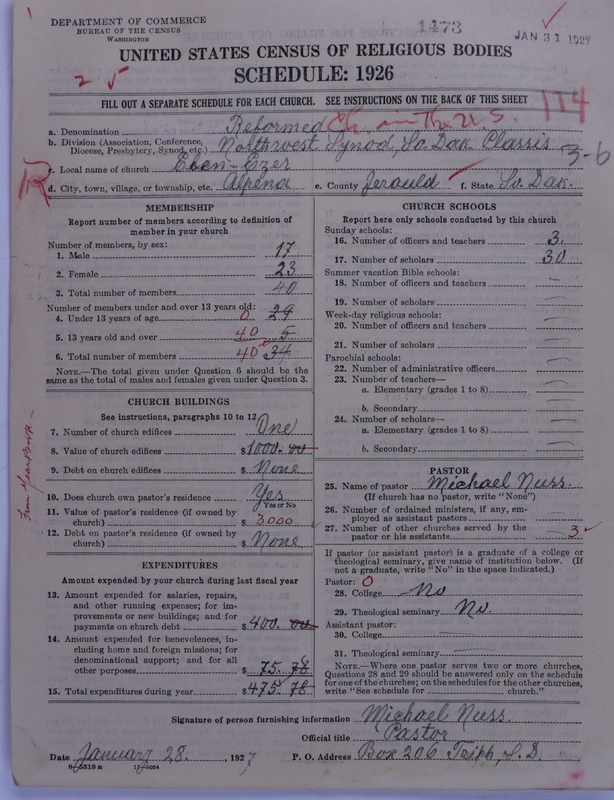 DEPARTMENT OF COMMERCE
BUREAU OF THE CENSUS
WASHINGTON
1473
JAN 31 1927
UNITED STATES CENSUS OF RELIGIOUS BODIES
SCHEDULE: 1926
2 5
FILL OUT A SEPARATE SCHEDULE FOR EACH CHURCH. SEE INSTRUCTIONS ON THE BACK OF THIS SHEET
114
a. Denomination Reformed Ch. in the U.S.
b. Division (Association, Conference, Diocese, Presbytery, Synod, etc.) Northwest Synod, So. Dak Classis
3-6
c. Local name of church Eben-Ezer
d. City, town, village, or township, etc. Alpena e. County Jerauld f. State So. Dak.
MEMBERSHIP
Report number of members according to definition of member in your church
Number of members, by sex:
1. Male 17
2. Female 23
3. Total number of members 40
Number of members under and over 13 years old:
4. Under 13 years of age 0 29
5. 13 years old and over 40 5
6. Total number of members 40 34
NOTE.—The total given under Question 6 should be the same as the total of males and females given under Question 3.
CHURCH BUILDINGS
See instructions, paragraphs 10 to 12
7. Number of church edifices One
8. Value of church edifices $1000. 00
9. Debt on church edifices $ None
From Yearbook
10. Does church own pastor's residence Yes
Yes or No
11. Value of pastor's residence (if owned by church) $ 3000
12. Debt on pastor's residence (if owned by church) $ None
EXPENDITURES
Amount expended by your church during last fiscal year
13. Amount expended for salaries, repairs, and other running expenses; for improvements or new buildings; and for payments on church debt $400. 00
14. Amount expended for benevolences, including home and foreign missions; for denominational support; and for all other purposes $ 75. 78
15. Total expenditures during year $475. 78
CHURCH SCHOOLS
Report here only schools conducted by this church
Sunday schools:
16. Number of officers and teachers 3.
17. Number of scholars 30
Summer vacation Bible schools:
18. Number of officers and teachers —
19. Number of scholars —
Week-day religious schools:
20. Number of officers and teachers —
21. Number of scholars —
Parochial schools:
22. Number of administrative officers —
23. Number of teachers—
a. Elementary (grades 1 to 8) —
b. Secondary —
24. Number of scholars—
a. Elementary (grades 1 to 8) —
b. Secondary —
PASTOR
25. Name of pastor Michael Nuss.
(If church has no pastor, write "None")
26. Number of ordained ministers, if any, employed as assistant pastors —
27. Number of other churches served by the pastor or his assistants 3
If pastor (or assistant pastor) is a graduate of a college or theological seminary, give name of institution below. (If not a graduate, write "No" in the space indicated.)
Pastor: 0
28. College No
29. Theological seminary No.
Assistant pastor:
30. College —
31. Theological seminary —
NOTE.—Where one pastor serves two or more churches, Questions 28 and 29 should be answered only on the schedule for one of the churches; on the schedules for the other churches, write "See schedule for church."
Signature of person furnishing information Michael Nuss.
Official title Pastor
Date January 28. 1927 P. O. Address Box 206 Tripp, S. D.